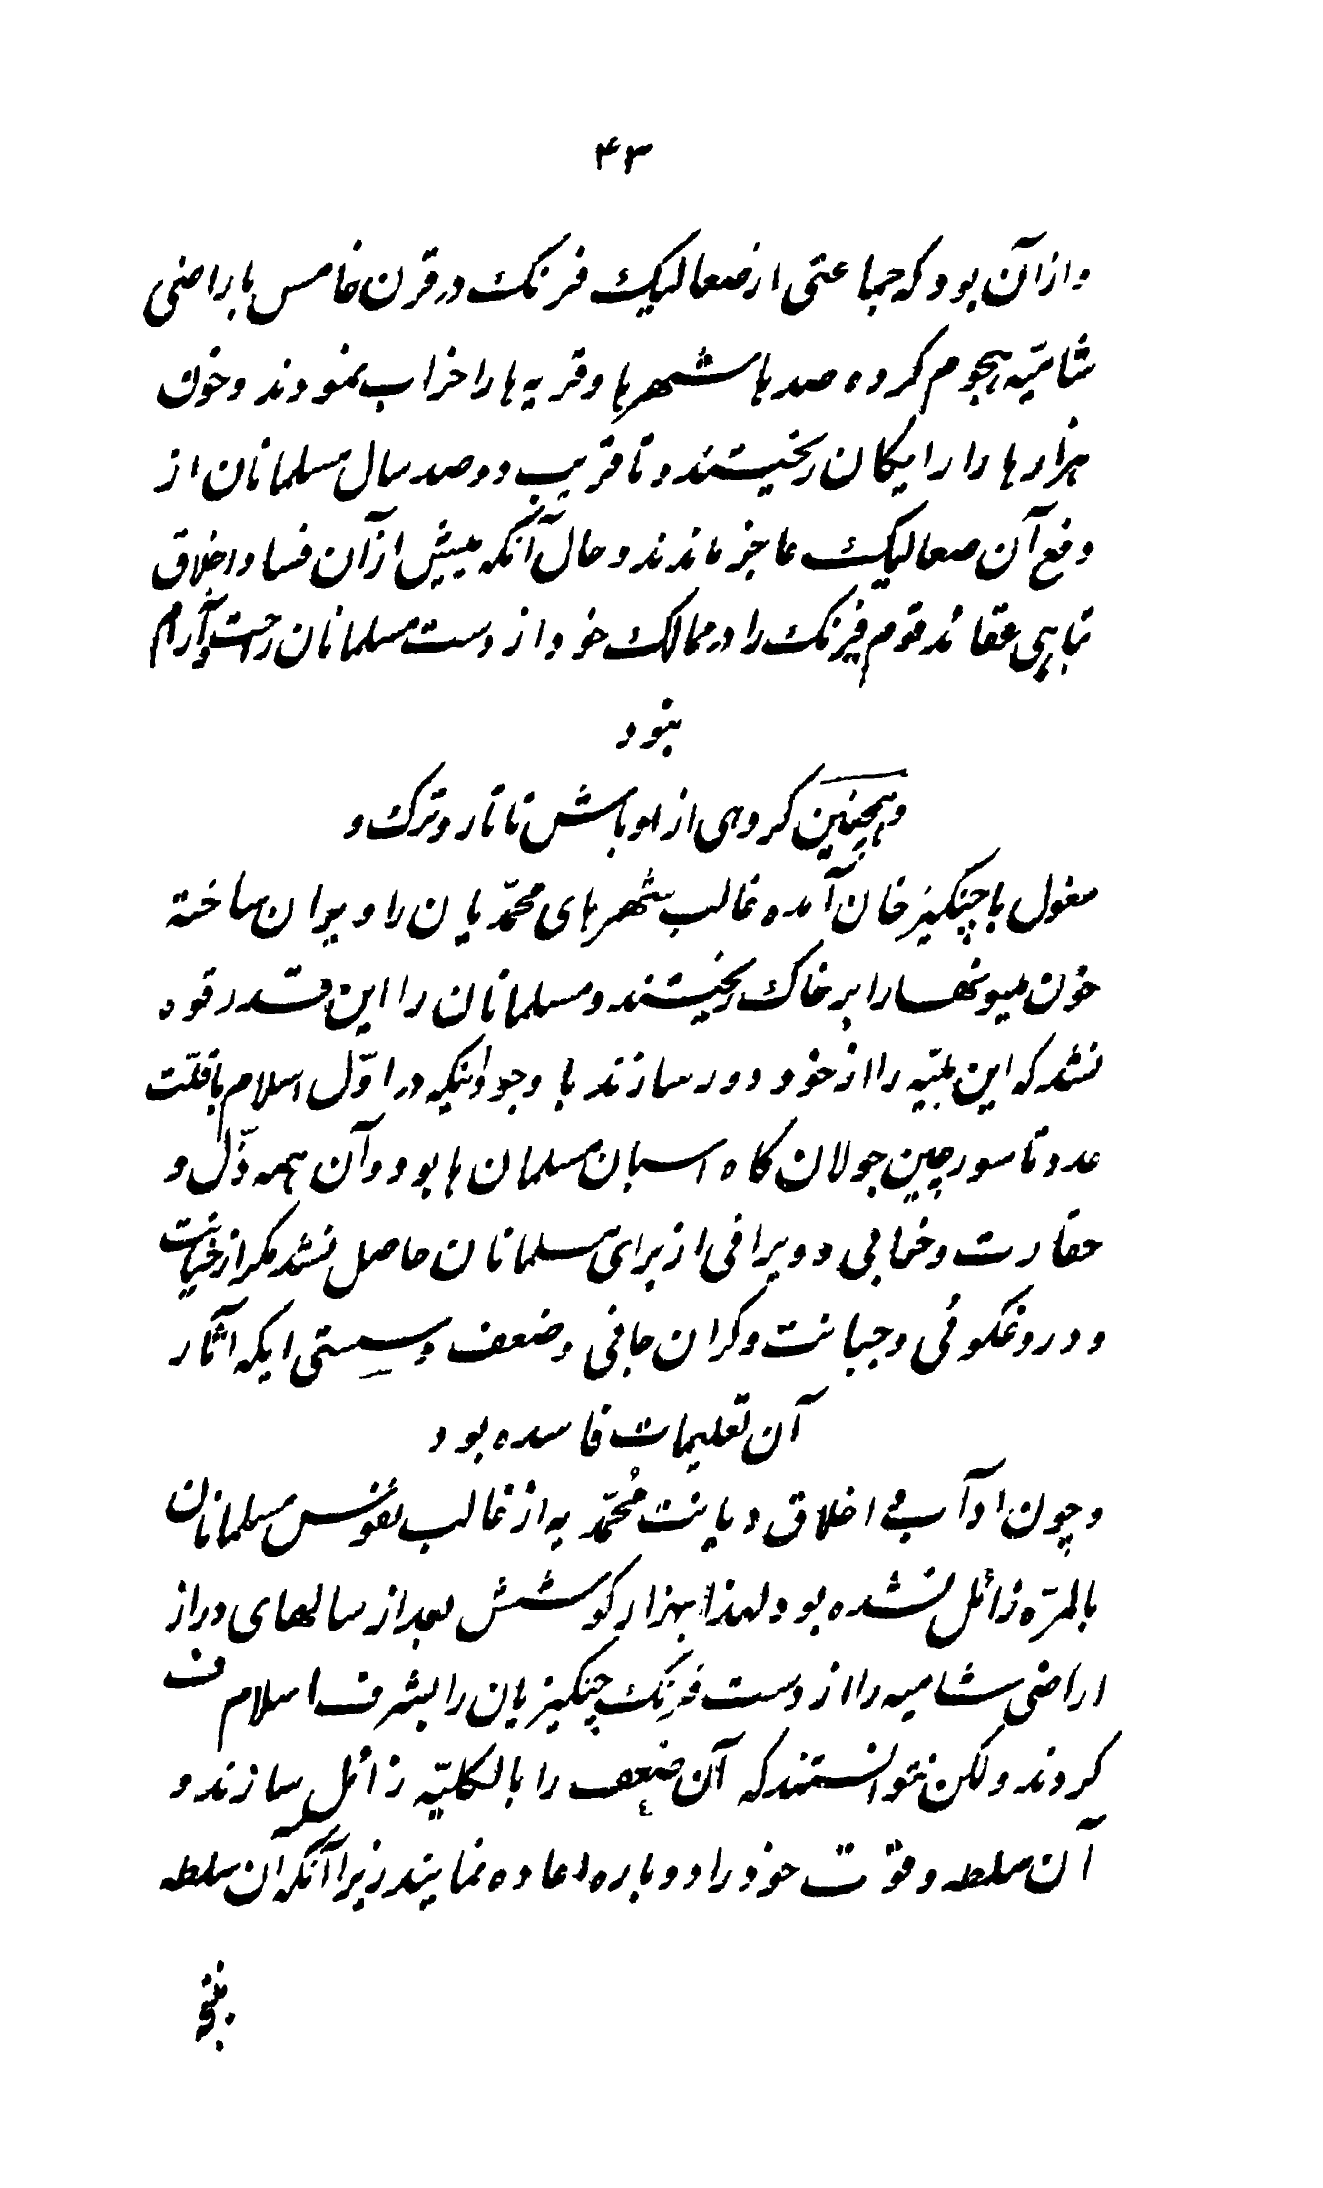 ۴۳
و از آن بود که جماعتی از صعالیک فرنک در قرن خامس باراضی
شامیّه هجوم کرده صدها شهرها و قریه ها را خراب نمودند و خون
هزارها را رایکان ریختند و تا قریب دو صد سال مسلمانان از
دفع آن صعالیک عاجز ماندند و حال آنکه پیش از آن فساد اخلاق
تباهی عقائد قوم فرنک را در ممالک خود از دست مسلمانان راحت و آرام
نبود
و همچنین کروهی از اوباش تاتار و ترک و
مغول با چنکیز خان آمده غالب شهرهای محمّدیان را ویران ساخته
خون میلیونها را بر خاک ریختند و مسلمانان را این قدر قوه
نشد که این بلیّه را از خود دور سازند با وجود اینکه در اوّل اسلام با قلّت
عدد تا سور چین جولان کاه اسبان مسلمان ها بود و آن همه ذّل و
حقارت و خرابی و ویرانی از برای مسلمانان حاصل نشد مکر از خیانت
و دروغکوئی و جبانت و کران جانی و ضعف و سستی ایکه آثار
آن تعلیمات فاسده بود
و چون ادآب و اخلاق دیانت مُحمّدیه از غالب نفوس مسلمانان
بالمرّه زائل نشده بود لهذا بهزار کوشش بعد از سالهای دراز
اراضی شامیه را از دست فرنک چنکیزیان را بشرف اسلام ف
کردند و لکن نتوانستند که آن ضعف را بالکلیّه زائل سازند و
آن سلطه و قوّت خود را دوباره اعاده نمایند زیرا آنکه آن سلطه